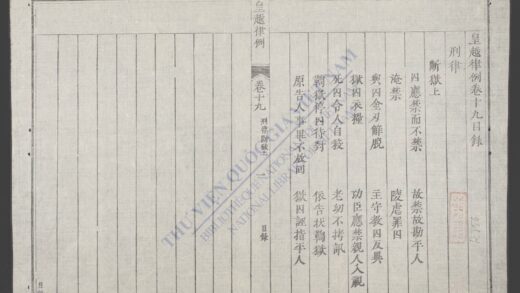 皇越律例卷十九目錄
刑律
斷獄上
囚應禁而不禁　故禁故勘平人
淹禁　陵虐罪囚
與囚金刃解脫　主守教囚反異
獄囚衣糧　功臣應禁親人入視
死囚令人自殺　老幼不拷訊
鞫獄停囚待對　依告狀鞫獄
原告人事畢不放回　獄囚誣指平人
皇越律例
卷十九
刑律斷獄上
一
目錄
THƯ VIỆN QUỐC GIA VIỆT NAM
BIBLIOTHEQUE NATIONALE DU VIETNAM
NATIONAL LIBRARY OF VIETNAM